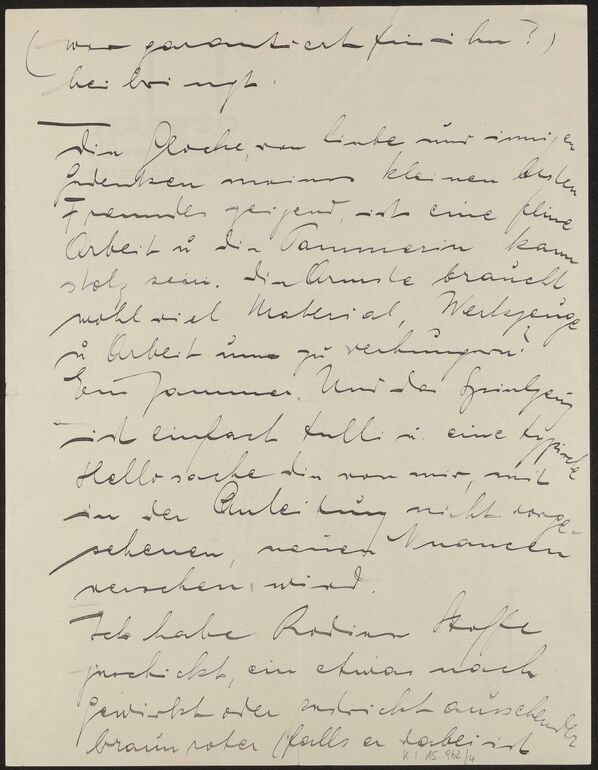 (wer garantiert für ihn?)
bei bringt.
Die Glocke, von Liebe und innigen
Gedenken meines kleinen besten
Freundes zeigend, ist eine feine
Arbeit u die Tammerin kann
stolz sein. die Ärmste braucht
wohl viel Material, Werkzeuge
u Arbeit um zu verhungern!
Ein Jammer. Und das Spielzeug
ist einfach tulli u. eine typische
Hello sache die von mir, mit
in der Anleitung nicht vorge-
sehenen, neuen Nuancen
versehen wird.
Ich habe Stoffe
geschickt, ein etwas nach
gewirkt oder gestrickt aussehender
braunroter (falls er dabei ist
K.I. 15.962/4